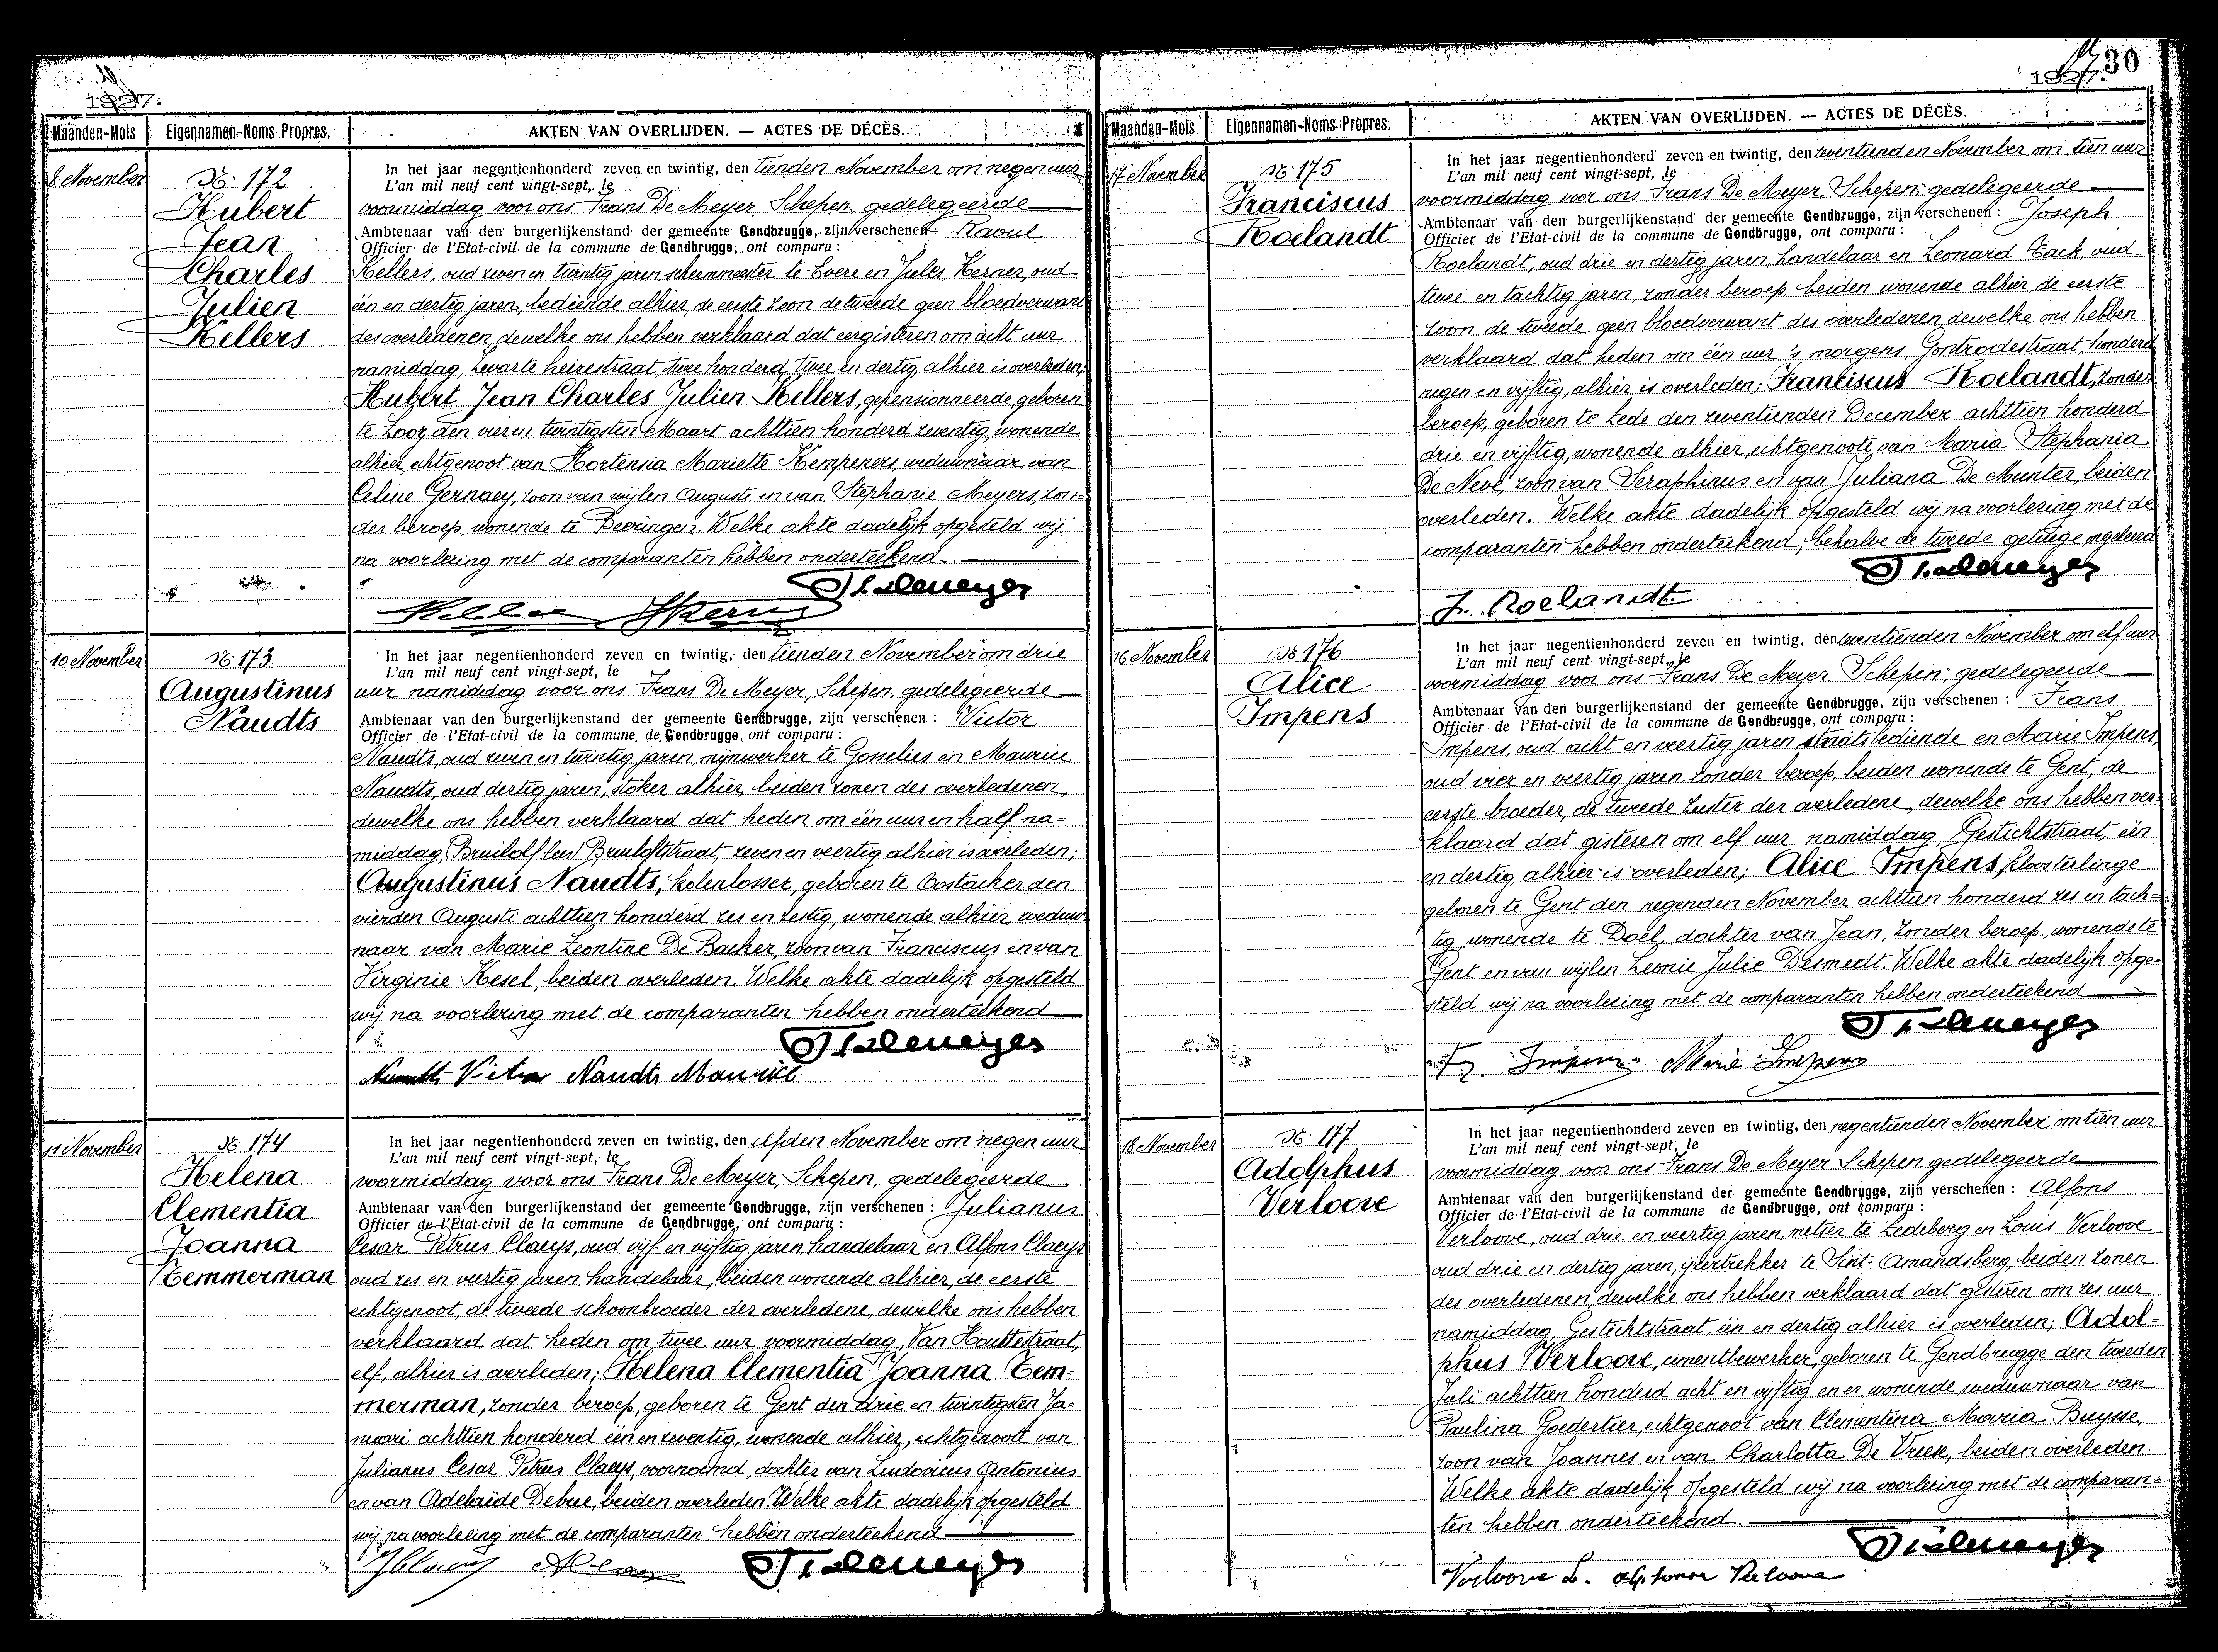 1927.
Maanden-Mois. Eigennamen-Noms Propres. AKTEN VAN OVERLIJDEN. — ACTES DE DÉCÈS.
8 November
N° 172
Hubert
Jean
Charles
Julien
Kellers
In het jaar negentienhonderd zeven en twintig, den tienden November om negen uur
L'an mil neuf cent vingt-sept, le
voormiddag voor ons Frans De Meyer, Schepen, gedelegeerde
Ambtenaar van den burgerlijkenstand der gemeente Gendbrugge, zijn verschenen Raoul
Officier de l'Etat-civil de la commune de Gendbrugge, ont comparu :
Kellers, oud zeven en twintig jaren schermmeester te Evere en Jules Kerner, oud
één en dertig jaren, bediende alhier, de eerste zoon de tweede geen bloedverwant
des overledenen, dewelke ons hebben verklaard dat eergisteren om acht uur
namiddag, Zwarte heirestraat, twee honderd twee en dertig alhier is overleden;
Hubert Jean Charles Julien Kellers, gepensionneerde, geboren
te Looz den vier en twintigsten Maart achttien honderd zeventig, wonende
alhier, echtgenoot van Hortensia Mariette Kempeners, weduwnaar van
Celine Gernaey, zoon van wijlen Auguste en van Stephanie Meyers, zon=
der beroep, wonende te Beeringen. Welke akte dadelijk opgesteld wij
na voorlezing met de comparanten hebben onderteekend.
10 November
N° 173
Augustinus
Naudts
In het jaar negentienhonderd zeven en twintig, den tienden November om drie
L'an mil neuf cent vingt-sept, le
uur namiddag voor ons Frans De Meyer, Schepen, gedelegeerde
Ambtenaar van den burgerlijkenstand der gemeente Gendbrugge, zijn verschenen : Victor
Officier de l'Etat-civil de la commune de Gendbrugge, ont comparu :
Naudts, oud zeven en twintig jaren, mijnwerker te Gosselies en Maurice
Naudts, oud dertig jaren, stoker alhier, beiden zonen des overledenen,
dewelke ons hebben verklaard dat heden om één uur en half na=
middag, Bruilof lees Bruiloftstraat, zeven en veertig alhier is overleden;
Augustinus Naudts, kolenlosser, geboren te Oostacker den
vierden Augusti achttien honderd zes en zestig, wonende alhier, weduw
naar van Marie Leontine De Backer, zoon van Franciscus en van
Virginie Kesel, beiden overleden. Welke akte dadelijk opgesteld
wij na voorlezing met de comparanten hebben onderteekend
Naudts Victor Naudts Maurice
11 November
N° 174
Helena
Clementia
Joanna
Temmerman
In het jaar negentienhonderd zeven en twintig, den elfden November om negen uur
L'an mil neuf cent vingt-sept, le
voormiddag voor ons Frans De Meyer, Schepen, gedelegeerde
Ambtenaar van den burgerlijkenstand der gemeente Gendbrugge, zijn verschenen : Julianus
Officier de l'Etat-civil de la commune de Gendbrugge, ont comparu :
Cesar Petrus Claeys, oud vijf en vijftig jaren handelaar en Alfons Claeys
oud zes en veertig jaren handelaar, beiden wonende alhier, de eerste
echtgenoot, de tweede schoonbroeder der overledene, dewelke ons hebben
verklaard dat heden om twee uur voormiddag, Van Houttestraat,
elf, alhier is overleden; Helena Clementia Joanna Tem=
merman, zonder beroep, geboren te Gent den drie en twintigsten Ja=
nuari achttien honderd één en zeventig, wonende alhier, echtgenoote van
Julianus Cesar Petrus Claeys, voornoemd, dochter van Ludovicus Antonius
en van Adelaïde Debue, beiden overleden. Welke akte dadelijk opgesteld
wij na voorlezing met de comparanten hebben onderteekend
1927.
30
Maanden-Mois. Eigennamen-Noms-Propres. AKTEN VAN OVERLIJDEN. — ACTES DE DÉCÈS.
17 November
N° 175
Franciscus
Roelandt
In het jaar negentienhonderd zeven en twintig, den zeventienden November om tien uur
L'an mil neuf cent vingt-sept, le
voormiddag voor ons Frans De Meyer, Schepen, gedelegeerde
Ambtenaar van den burgerlijkenstand der gemeente Gendbrugge, zijn verschenen : Joseph
Officier de l'Etat-civil de la commune de Gendbrugge, ont comparu :
Roelandt, oud drie en dertig jaren, handelaar en Leonard Tack, oud
twee en tachtig jaren, zonder beroep, beiden wonende alhier, de eerste
zoon de tweede geen bloedverwant des overledenen, dewelke ons hebben
verklaard dat heden om één uur 's morgens, Gontrodestraat, honderd
negen en vijftig, alhier is overleden; Franciscus Roelandt, zonder
beroep, geboren te Lede den zeventienden December achttien honderd
drie en vijftig, wonende alhier, echtgenoote van Maria Stephania
De Neve, zoon van Seraphinus en van Juliana De Munter, beiden
overleden. Welke akte dadelijk opgesteld wij na voorlezing met de
comparanten hebben onderteekend, behalve de tweede getuige ongeleerd
J. Roelandt
16 November
N° 176
Alice
Impens
In het jaar negentienhonderd zeven en twintig, den zeventienden November om elf uur
L'an mil neuf cent vingt-sept, le
voormiddag voor ons Frans De Meyer, Schepen, gedelegeerde
Ambtenaar van den burgerlijkenstand der gemeente Gendbrugge, zijn verschenen : Frans
Officier de l'Etat-civil de la commune de Gendbrugge, ont comparu :
Impens, oud acht en veertig jaren staatsbediende en Marie Impens,
oud vier en veertig jaren, zonder beroep, beiden wonende te Gent, de
eerste broeder, de tweede zuster der overledene, dewelke ons hebben ver
klaard dat gisteren om elf uur namiddag, Gestichtstraat, één
en dertig, alhier is overleden; Alice Impens, kloosterlinge
geboren te Gent den negenden November achttien honderd zes en tach=
tig, wonende te Doel, dochter van Jean, zonder beroep, wonende te
Gent en van wijlen Leonie Julie Desmedt. Welke akte dadelijk opge=
steld wij na voorlezing met de comparanten hebben onderteekend
Fr. Impens Marie Impens
18 November
N° 177
Adolphus
Verloove
In het jaar negentienhonderd zeven en twintig, den negentienden November om tien uur
L'an mil neuf cent vingt-sept, le
voormiddag voor ons Frans De Meyer Schepen gedelegeerde
Ambtenaar van den burgerlijkenstand der gemeente Gendbrugge, zijn verschenen : Alfons
Officier de l'Etat-civil de la commune de Gendbrugge, ont comparu :
Verloove, oud drie en veertig jaren, metser te Ledeberg en Louis Verloove
oud drie en dertig jaren, ijzertrekker te Sint-Amandsberg, beiden zonen
des overledenen, dewelke ons hebben verklaard dat gisteren om zes uur
namiddag, Gestichtstraat één en dertig alhier is overleden; Adol=
phus Verloove, cimentbewerker, geboren te Gendbrugge den tweeden
Juli achttien honderd acht en vijftig en er wonende, weduwnaar van
Paulina Goedertier, echtgenoot van Clementina Maria Buysse,
zoon van Joannes en van Charlotta De Vreese, beiden overleden.
Welke akte dadelijk opgesteld wij na voorlezing met de comparan=
ten hebben onderteekend.
Verloove L. Alphonse Verloove